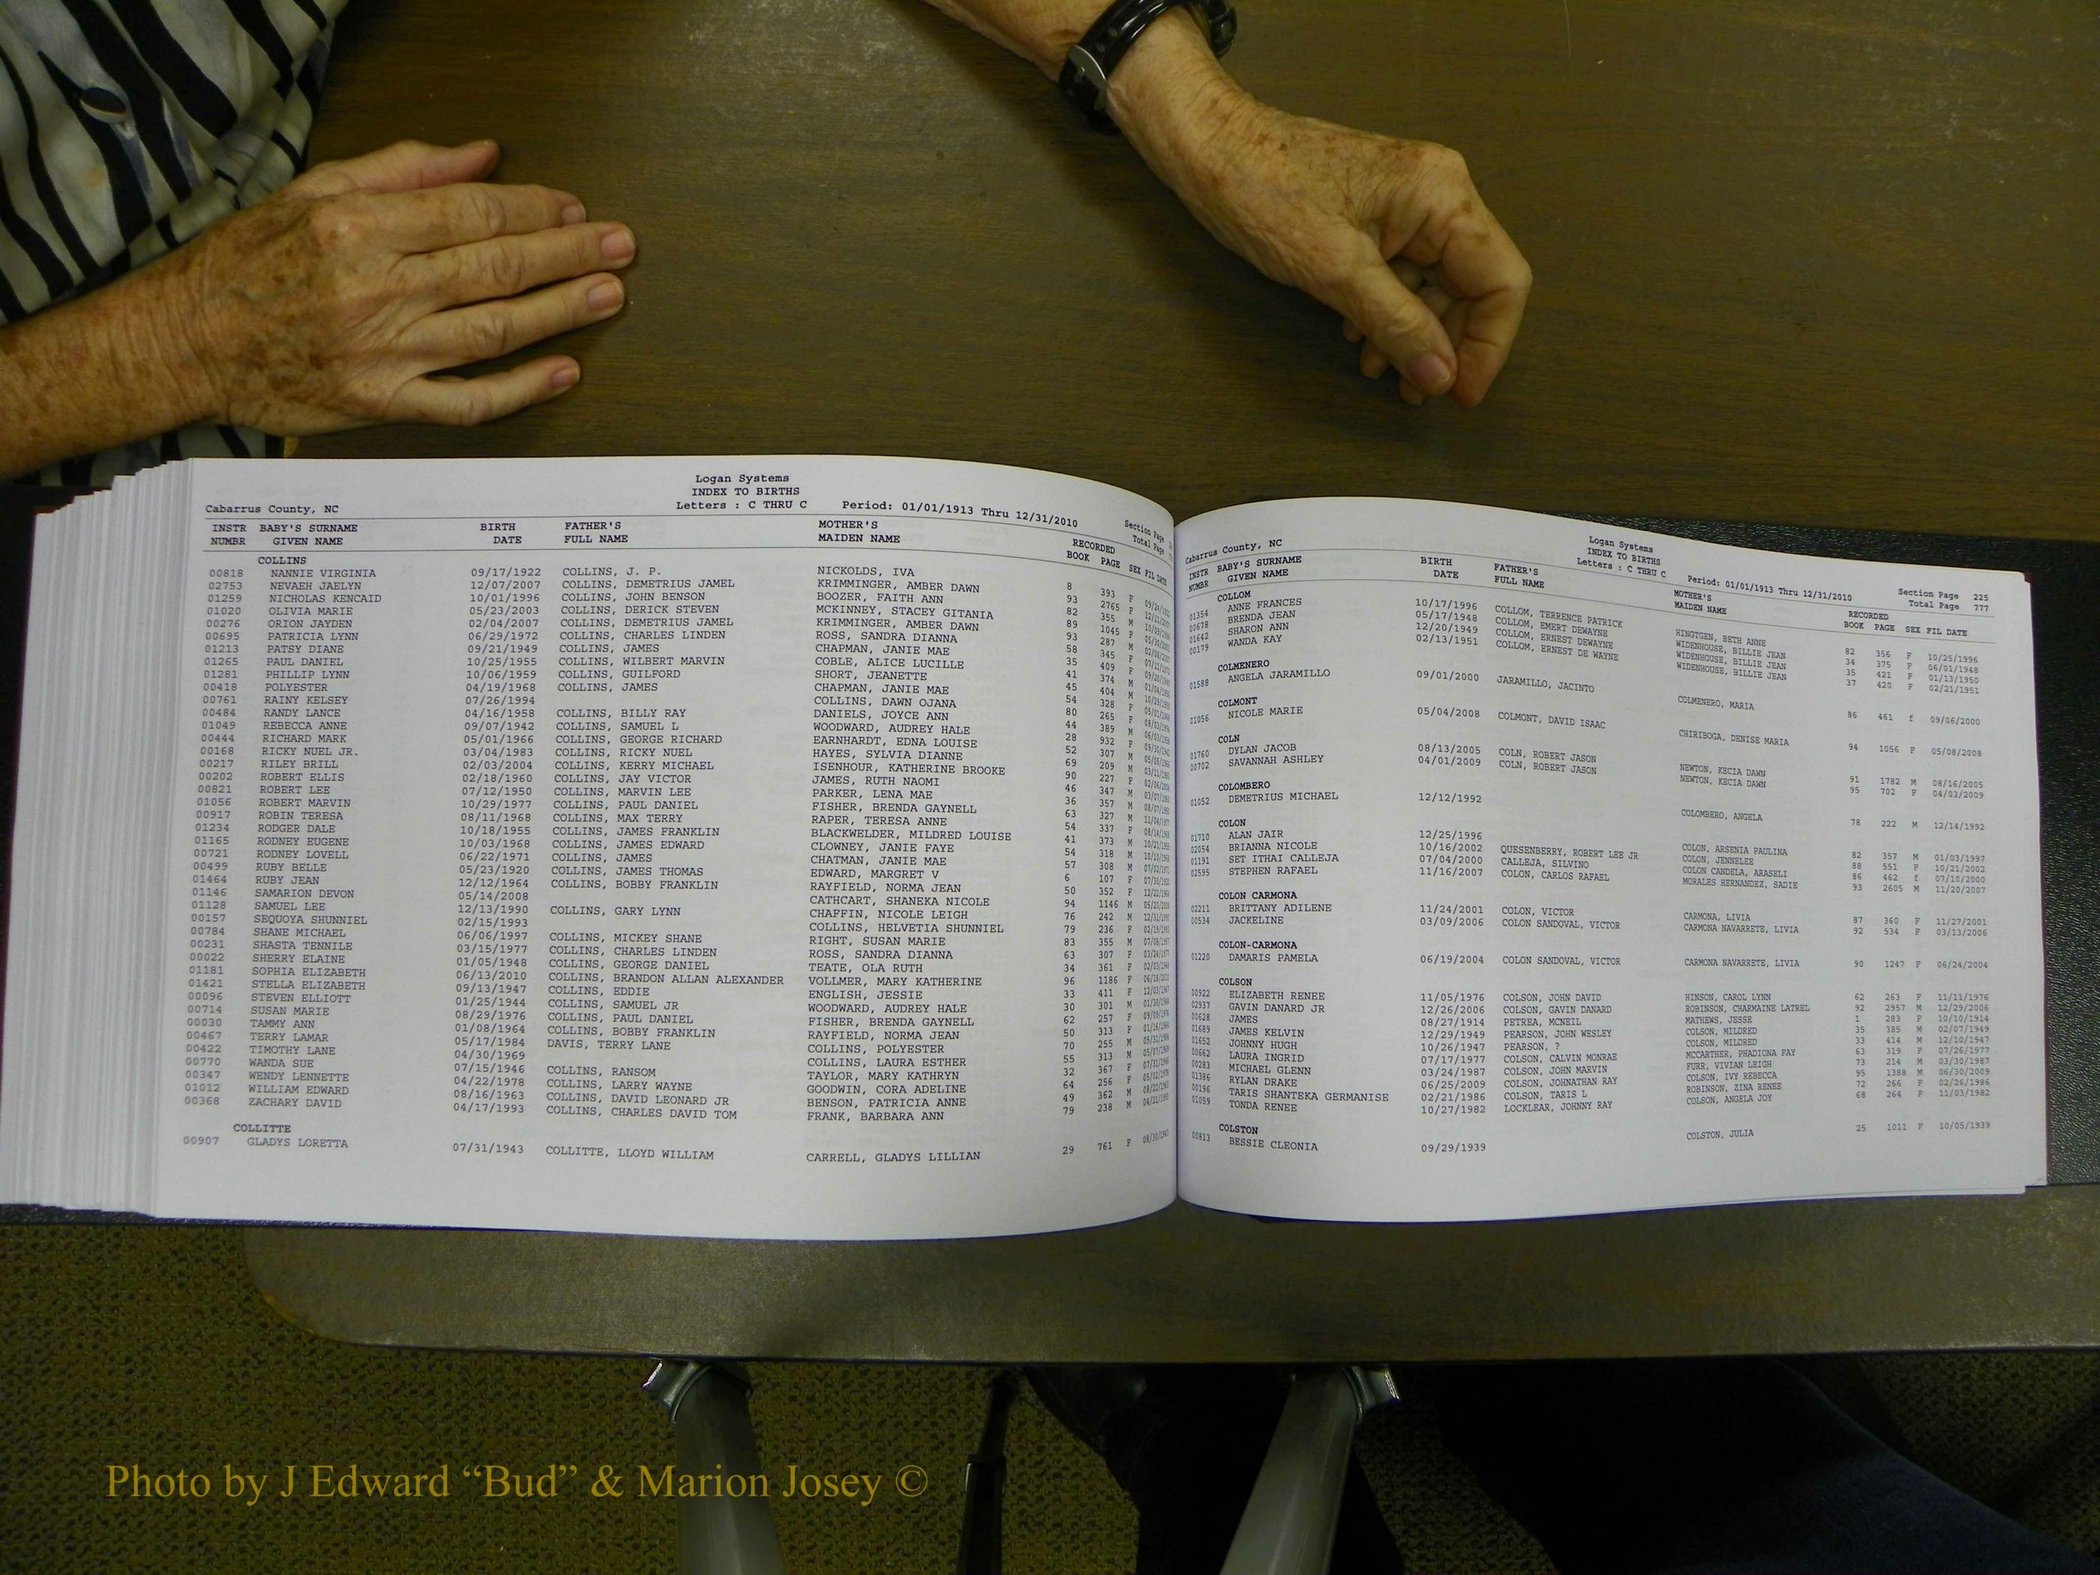 Logan Systems
INDEX TO BIRTHS
Cabarrus County, NC Letters : C THRU C Period: 01/01/1913 Thru 12/31/2010 Section Page
Total Page
INSTR BABY'S SURNAME BIRTH FATHER'S MOTHER'S RECORDED
NUMBR GIVEN NAME DATE FULL NAME MAIDEN NAME BOOK PAGE SEX FIL DATE
COLLINS
00818 NANNIE VIRGINIA 09/17/1922 COLLINS, J. P. NICKOLDS, IVA 8 393 F
02753 NEVAEH JAELYN 12/07/2007 COLLINS, DEMETRIUS JAMEL KRIMMINGER, AMBER DAWN 93 2765 F
01259 NICHOLAS KENCAID 10/01/1996 COLLINS, JOHN BENSON BOOZER, FAITH ANN 82 355 M
01020 OLIVIA MARIE 05/23/2003 COLLINS, DERICK STEVEN MCKINNEY, STACEY GITANIA 89 1045 F
00276 ORION JAYDEN 02/04/2007 COLLINS, DEMETRIUS JAMEL KRIMMINGER, AMBER DAWN 93 287 M
00695 PATRICIA LYNN 06/29/1972 COLLINS, CHARLES LINDEN ROSS, SANDRA DIANNA 58 345 F
01213 PATSY DIANE 09/21/1949 COLLINS, JAMES CHAPMAN, JANIE MAE 35 409 F
01265 PAUL DANIEL 10/25/1955 COLLINS, WILBERT MARVIN COBLE, ALICE LUCILLE 41 374 M
01281 PHILLIP LYNN 10/06/1959 COLLINS, GUILFORD SHORT, JEANETTE 45 404 M
00418 POLYESTER 04/19/1968 COLLINS, JAMES CHAPMAN, JANIE MAE 54 328 F
00761 RAINY KELSEY 07/26/1994 COLLINS, DAWN OJANA 80 265 F
00484 RANDY LANCE 04/16/1958 COLLINS, BILLY RAY DANIELS, JOYCE ANN 44 389 M
01049 REBECCA ANNE 09/07/1942 COLLINS, SAMUEL L WOODWARD, AUDREY HALE 28 932 F
00444 RICHARD MARK 05/01/1966 COLLINS, GEORGE RICHARD EARNHARDT, EDNA LOUISE 52 307 M
00168 RICKY NUEL JR. 03/04/1983 COLLINS, RICKY NUEL HAYES, SYLVIA DIANNE 69 209 M
00217 RILEY BRILL 02/03/2004 COLLINS, KERRY MICHAEL ISENHOUR, KATHERINE BROOKE 90 227 F
00202 ROBERT ELLIS 02/18/1960 COLLINS, JAY VICTOR JAMES, RUTH NAOMI 46 347 M
00821 ROBERT LEE 07/12/1950 COLLINS, MARVIN LEE PARKER, LENA MAE 36 357 M
01056 ROBERT MARVIN 10/29/1977 COLLINS, PAUL DANIEL FISHER, BRENDA GAYNELL 63 327 M
00917 ROBIN TERESA 08/11/1968 COLLINS, MAX TERRY RAPER, TERESA ANNE 54 337 F
01234 RODGER DALE 10/18/1955 COLLINS, JAMES FRANKLIN BLACKWELDER, MILDRED LOUISE 41 373 M
01165 RODNEY EUGENE 10/03/1968 COLLINS, JAMES EDWARD CLOWNEY, JANIE FAYE 54 318 M
00721 RODNEY LOVELL 06/22/1971 COLLINS, JAMES CHATMAN, JANIE MAE 57 308 M
00499 RUBY BELLE 05/23/1920 COLLINS, JAMES THOMAS EDWARD, MARGRET V 6 107 F
01464 RUBY JEAN 12/12/1964 COLLINS, BOBBY FRANKLIN RAYFIELD, NORMA JEAN 50 352 F
01146 SAMARION DEVON 05/14/2008 CATHCART, SHANEKA NICOLE 94 1146 M
01128 SAMUEL LEE 12/13/1990 COLLINS, GARY LYNN CHAFFIN, NICOLE LEIGH 76 242 M
00157 SEQUOYA SHUNNIEL 02/15/1993 COLLINS, HELVETIA SHUNNIEL 79 236 F
00784 SHANE MICHAEL 06/06/1997 COLLINS, MICKEY SHANE RIGHT, SUSAN MARIE 83 355 M
00231 SHASTA TENNILE 03/15/1977 COLLINS, CHARLES LINDEN ROSS, SANDRA DIANNA 63 307 F
00022 SHERRY ELAINE 01/05/1948 COLLINS, GEORGE DANIEL TEATE, OLA RUTH 34 361 F
01181 SOPHIA ELIZABETH 06/13/2010 COLLINS, BRANDON ALLAN ALEXANDER VOLLMER, MARY KATHERINE 96 1186 F
01421 STELLA ELIZABETH 09/13/1947 COLLINS, EDDIE ENGLISH, JESSIE 33 411 F
00096 STEVEN ELLIOTT 01/25/1944 COLLINS, SAMUEL JR WOODWARD, AUDREY HALE 30 301 M
00714 SUSAN MARIE 08/29/1976 COLLINS, PAUL DANIEL FISHER, BRENDA GAYNELL 62 257 F
00030 TAMMY ANN 01/08/1964 COLLINS, BOBBY FRANKLIN RAYFIELD, NORMA JEAN 50 313 F
00467 TERRY LAMAR 05/17/1984 DAVIS, TERRY LANE COLLINS, POLYESTER 70 255 M
00422 TIMOTHY LANE 04/30/1969 COLLINS, LAURA ESTHER 55 313 M
00770 WANDA SUE 07/15/1946 COLLINS, RANSOM TAYLOR, MARY KATHRYN 32 367 F
00347 WENDY LENNETTE 04/22/1978 COLLINS, LARRY WAYNE GOODWIN, CORA ADELINE 64 256 F
01012 WILLIAM EDWARD 08/16/1963 COLLINS, DAVID LEONARD JR BENSON, PATRICIA ANNE 49 362 M
00368 ZACHARY DAVID 04/17/1993 COLLINS, CHARLES DAVID TOM FRANK, BARBARA ANN 79 238 M
COLLITTE
00907 GLADYS LORETTA 07/31/1943 COLLITTE, LLOYD WILLIAM CARRELL, GLADYS LILLIAN 29 761 F
Logan Systems
INDEX TO BIRTHS
Cabarrus County, NC Letters : C THRU C Period: 01/01/1913 Thru 12/31/2010 Section Page 225
Total Page 777
INSTR BABY'S SURNAME BIRTH FATHER'S MOTHER'S RECORDED
NUMBR GIVEN NAME DATE FULL NAME MAIDEN NAME BOOK PAGE SEX FIL DATE
COLLOM
01354 ANNE FRANCES 10/17/1996 COLLOM, TERRENCE PATRICK HINGTGEN, BETH ANNE 82 356 F 10/25/1996
00678 BRENDA JEAN 05/17/1948 COLLOM, EMERT DEWAYNE WIDENHOUSE, BILLIE JEAN 34 375 F 06/01/1948
01642 SHARON ANN 12/20/1949 COLLOM, ERNEST DEWAYNE WIDENHOUSE, BILLIE JEAN 35 421 F 01/13/1950
00179 WANDA KAY 02/13/1951 COLLOM, ERNEST DE WAYNE WIDENHOUSE, BILLIE JEAN 37 420 F 02/21/1951
COLMENERO
01588 ANGELA JARAMILLO 09/01/2000 JARAMILLO, JACINTO COLMENERO, MARIA 86 461 f 09/06/2000
COLMONT
01056 NICOLE MARIE 05/04/2008 COLMONT, DAVID ISAAC CHIRIBOGA, DENISE MARIA 94 1056 F 05/08/2008
COLN
01760 DYLAN JACOB 08/13/2005 COLN, ROBERT JASON NEWTON, KECIA DAWN 91 1782 M 08/16/2005
00702 SAVANNAH ASHLEY 04/01/2009 COLN, ROBERT JASON NEWTON, KECIA DAWN 95 702 F 04/03/2009
COLOMBERO
01052 DEMETRIUS MICHAEL 12/12/1992 COLOMBERO, ANGELA 78 222 M 12/14/1992
COLON
01710 ALAN JAIR 12/25/1996 COLON, ARSENIA PAULINA 82 357 M 01/03/1997
02054 BRIANNA NICOLE 10/16/2002 QUESENBERRY, ROBERT LEE JR COLON, JENNELEE 88 551 F 10/21/2002
01191 SET ITHAI CALLEJA 07/04/2000 CALLEJA, SILVINO COLON CANDELA, ARASELI 86 462 f 07/10/2000
02595 STEPHEN RAFAEL 11/16/2007 COLON, CARLOS RAFAEL MORALES HERNANDEZ, SADIE 93 2605 M 11/20/2007
COLON CARMONA
02211 BRITTANY ADILENE 11/24/2001 COLON, VICTOR CARMONA, LIVIA 87 360 F 11/27/2001
00534 JACKELINE 03/09/2006 COLON SANDOVAL, VICTOR CARMONA NAVARRETE, LIVIA 92 534 F 03/13/2006
COLON-CARMONA
01220 DAMARIS PAMELA 06/19/2004 COLON SANDOVAL, VICTOR CARMONA NAVARRETE, LIVIA 90 1247 F 06/24/2004
COLSON
00922 ELIZABETH RENEE 11/05/1976 COLSON, JOHN DAVID HINSON, CAROL LYNN 62 263 F 11/11/1976
02937 GAVIN DANARD JR 12/26/2006 COLSON, GAVIN DANARD ROBINSON, CHARMAINE LATREL 92 2957 M 12/29/2006
00628 JAMES 08/27/1914 PETREA, MCNEIL MATHEWS, JESSE 1 283 F 10/10/1914
01689 JAMES KELVIN 12/29/1949 PEARSON, JOHN WESLEY COLSON, MILDRED 35 385 M 02/07/1949
01652 JOHNNY HUGH 10/26/1947 PEARSON, ? COLSON, MILDRED 33 414 M 12/10/1947
00662 LAURA INGRID 07/17/1977 COLSON, CALVIN MONRAE MCCARTHER, PHADIONA FAY 63 319 F 07/26/1977
00283 MICHAEL GLENN 03/24/1987 COLSON, JOHN MARVIN FURR, VIVIAN LEIGH 73 214 M 03/30/1987
01386 RYLAN DRAKE 06/25/2009 COLSON, JOHNATHAN RAY COLSON, IVY REBECCA 95 1388 M 06/30/2009
00196 TARIS SHANTEKA GERMANISE 02/21/1986 COLSON, TARIS L ROBINSON, ZINA RENEE 72 266 F 02/26/1986
01059 TONDA RENEE 10/27/1982 LOCKLEAR, JOHNNY RAY COLSON, ANGELA JOY 68 264 F 11/03/1982
COLSTON
00813 BESSIE CLEONIA 09/29/1939 COLSTON, JULIA 25 1011 F 10/05/1939
Photo by J Edward “Bud” & Marion Josey ©